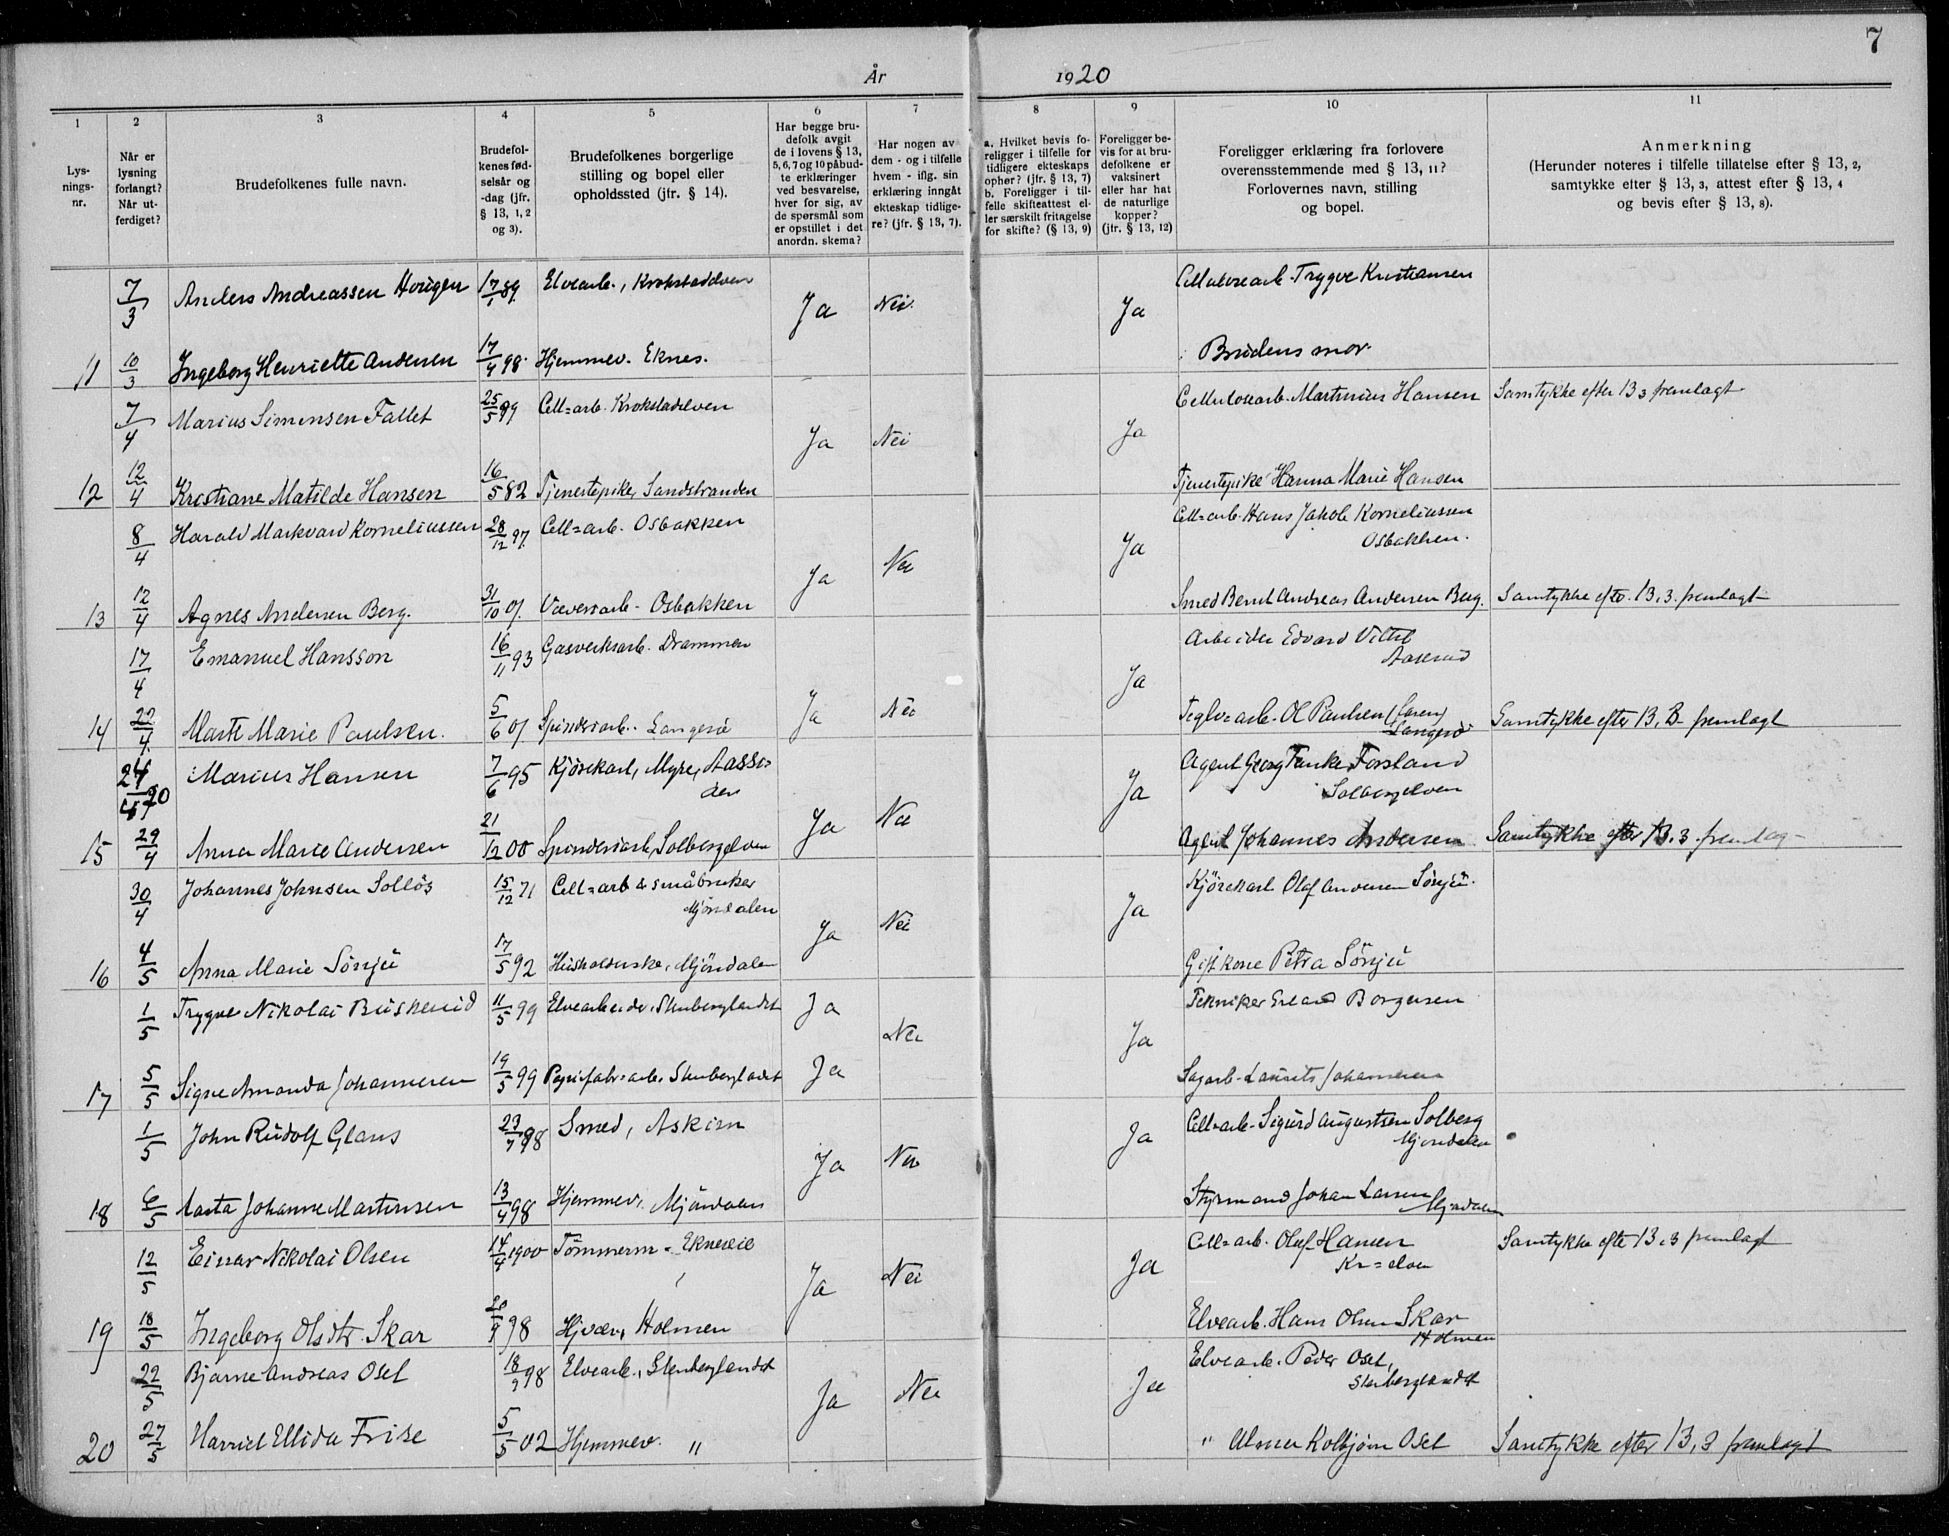 7
År 1920
1 2 3 4 5 6 7 8 9 10 11
Lys-
nings-
nr.
Når er
lysning
forlangt?
Når ut-
ferdiget?
Brudefolkenes fulle navn.
Brudefol-
kenes fød-
selsår og
-dag (jfr.
§ 13, 1, 2
og 3).
Brudefolkenes borgerlige
stilling og bopel eller
opholdssted (jfr. § 14).
Har begge bru-
defolk avgit
de i lovens § 13,
5, 6, 7 og 10 påbud-
te erklæringer
ved besvarelse,
hver for sig, av
de spørsmål som
er opstillet i det
anordn. skema?
Har nogen av
dem - og i tilfelle
hvem - iflg. sin
erklæring inngåt
ekteskap tidlige-
re? (jfr. § 13, 7).
a. Hvilket bevis fo-
religger i tilfelle for
tidligere ekteskaps
ophør? (jfr. § 13, 7)
b. Foreligger i til-
felle skifteattest el-
ler særskilt fritagelse
for skifte? (§ 13, 9)
Foreligger be-
vis for at bru-
defolkene er
vaksinert
eller har hat
de naturlige
kopper?
(jfr. § 13, 12)
Foreligger erklæring fra forlovere
overensstemmende med § 13, 11?
Forlovernes navn, stilling
og bopel.
Anmerkning
(Herunder noteres i tilfelle tillatelse efter § 13, 2,
samtykke efter § 13, 3, attest efter § 13, 4
og bevis efter § 13, 8).
7/3 Anders Andreassen Hougen 17/1 89 Elvearb., Krokstadelven Ja Nei Ja Cellulosearb. Trygve Kristiansen
11 10/3 Ingeborg Henriette Andersen 17/4 98. Hjemmev. Eknes. Brudens mor
7/4 Marius Simensen Fallet 25/5 89 Cell=arb. Krokstadelven Ja Nei Ja Cellulosearb. Martinius Hansen Samtykke efter 13 3 fremlagt
12 12/4 Kristiane Matilde Hansen 16/5 82 Tjenestepike, Sandstranden Tjenestepike Hanna Marie Hansen
8/4 Harald Markvard Korneliussen 28/12 97. Cell=arb. Osbakken Ja Nei Ja Cell=arb. Hans Jakob Korneliussen
Osbakken.
13 12/4 Agnes Andersen Berg. 31/10 01. Væveriarb - Osbakken Smed Bernt Andreas Andersen Berg. Samtykke efter 13, 3. fremlagt
17/4 Emanuel Hansson 16/11 93 Gasverksarb. Drammen Ja Nei Ja Arbeider Edvard
Aaserud
14 22/4 Marte Marie Paulsen. 5/6 01 Spinneriarb. Teglv.arb. Ol Paulsen Samtykke efter 13, 3 fremlagt
24/4 20 Marius Hansen 7/6 95 Kjørekarl, Myre, Aassi-
den Ja Nei Ja Agent Georg Forsland
Solbergelven
15 29/4 Anna Marie Andersen 21/12 00 Spinneriarb, Solbergelven Agent Johannes Andersen Samtykke efter 13. 3. fremlag-
30/4 Johannes Johnsen Solløs 15/12 71 Cell=arb & småbruker
Mjøndalen Ja Nei Ja Kjørekarl Olaf Andersen Sønju.
16 4/5 Anna Marie Sønju 17/5 92 Husholderske, Mjøndalen Gift kone Petra Sønju
1/5 Trygve Nikolai Buskerud 11/5 99 Elvearbeider, Stenberglandet Ja Nei Ja Tekniker Erland Borgersen
17 5/5 Signe Amanda Johannesen 19/5 99 Papirfabr=arb. Stenberglandet Ja Sagarb- Laurits Johannesen
1/5 John Rudolf Glans 23/7 98 Smed, Askim Ja Nei Ja Cell=arb- Sigurd Augustsen Solberg
Mjøndalen
18 6/5 Aasta Johanne Martinsen 13/4 98 Hjemmev. Mjøndalen Styrmand Johan Larsen Mjøndalen
12/5 Einar Nikolai Olsen 14/4 1900 Tømmerm - Ja Nei Ja Cell=arb. Olaf Hansen
Kr=elven Samtykke efter 13, 3 fremlagt
19 18/5 Ingeborg Olsdtr. Skar 20/9 98 Hjvær, Holmen Elvearb. Hans Olsen Skar
Holmen
22/5 Bjarne Andreas Oset 18/9 98 Elvearb., Stenberglandet Ja Nei Ja Elvearb. Peder Oset,
Stenberglandet
20 27/5 Harriet Ellida Frise 5/5 02 Hjemmev. " " Kolbjørn Oset Samtykke efter 13, 3 fremlagt